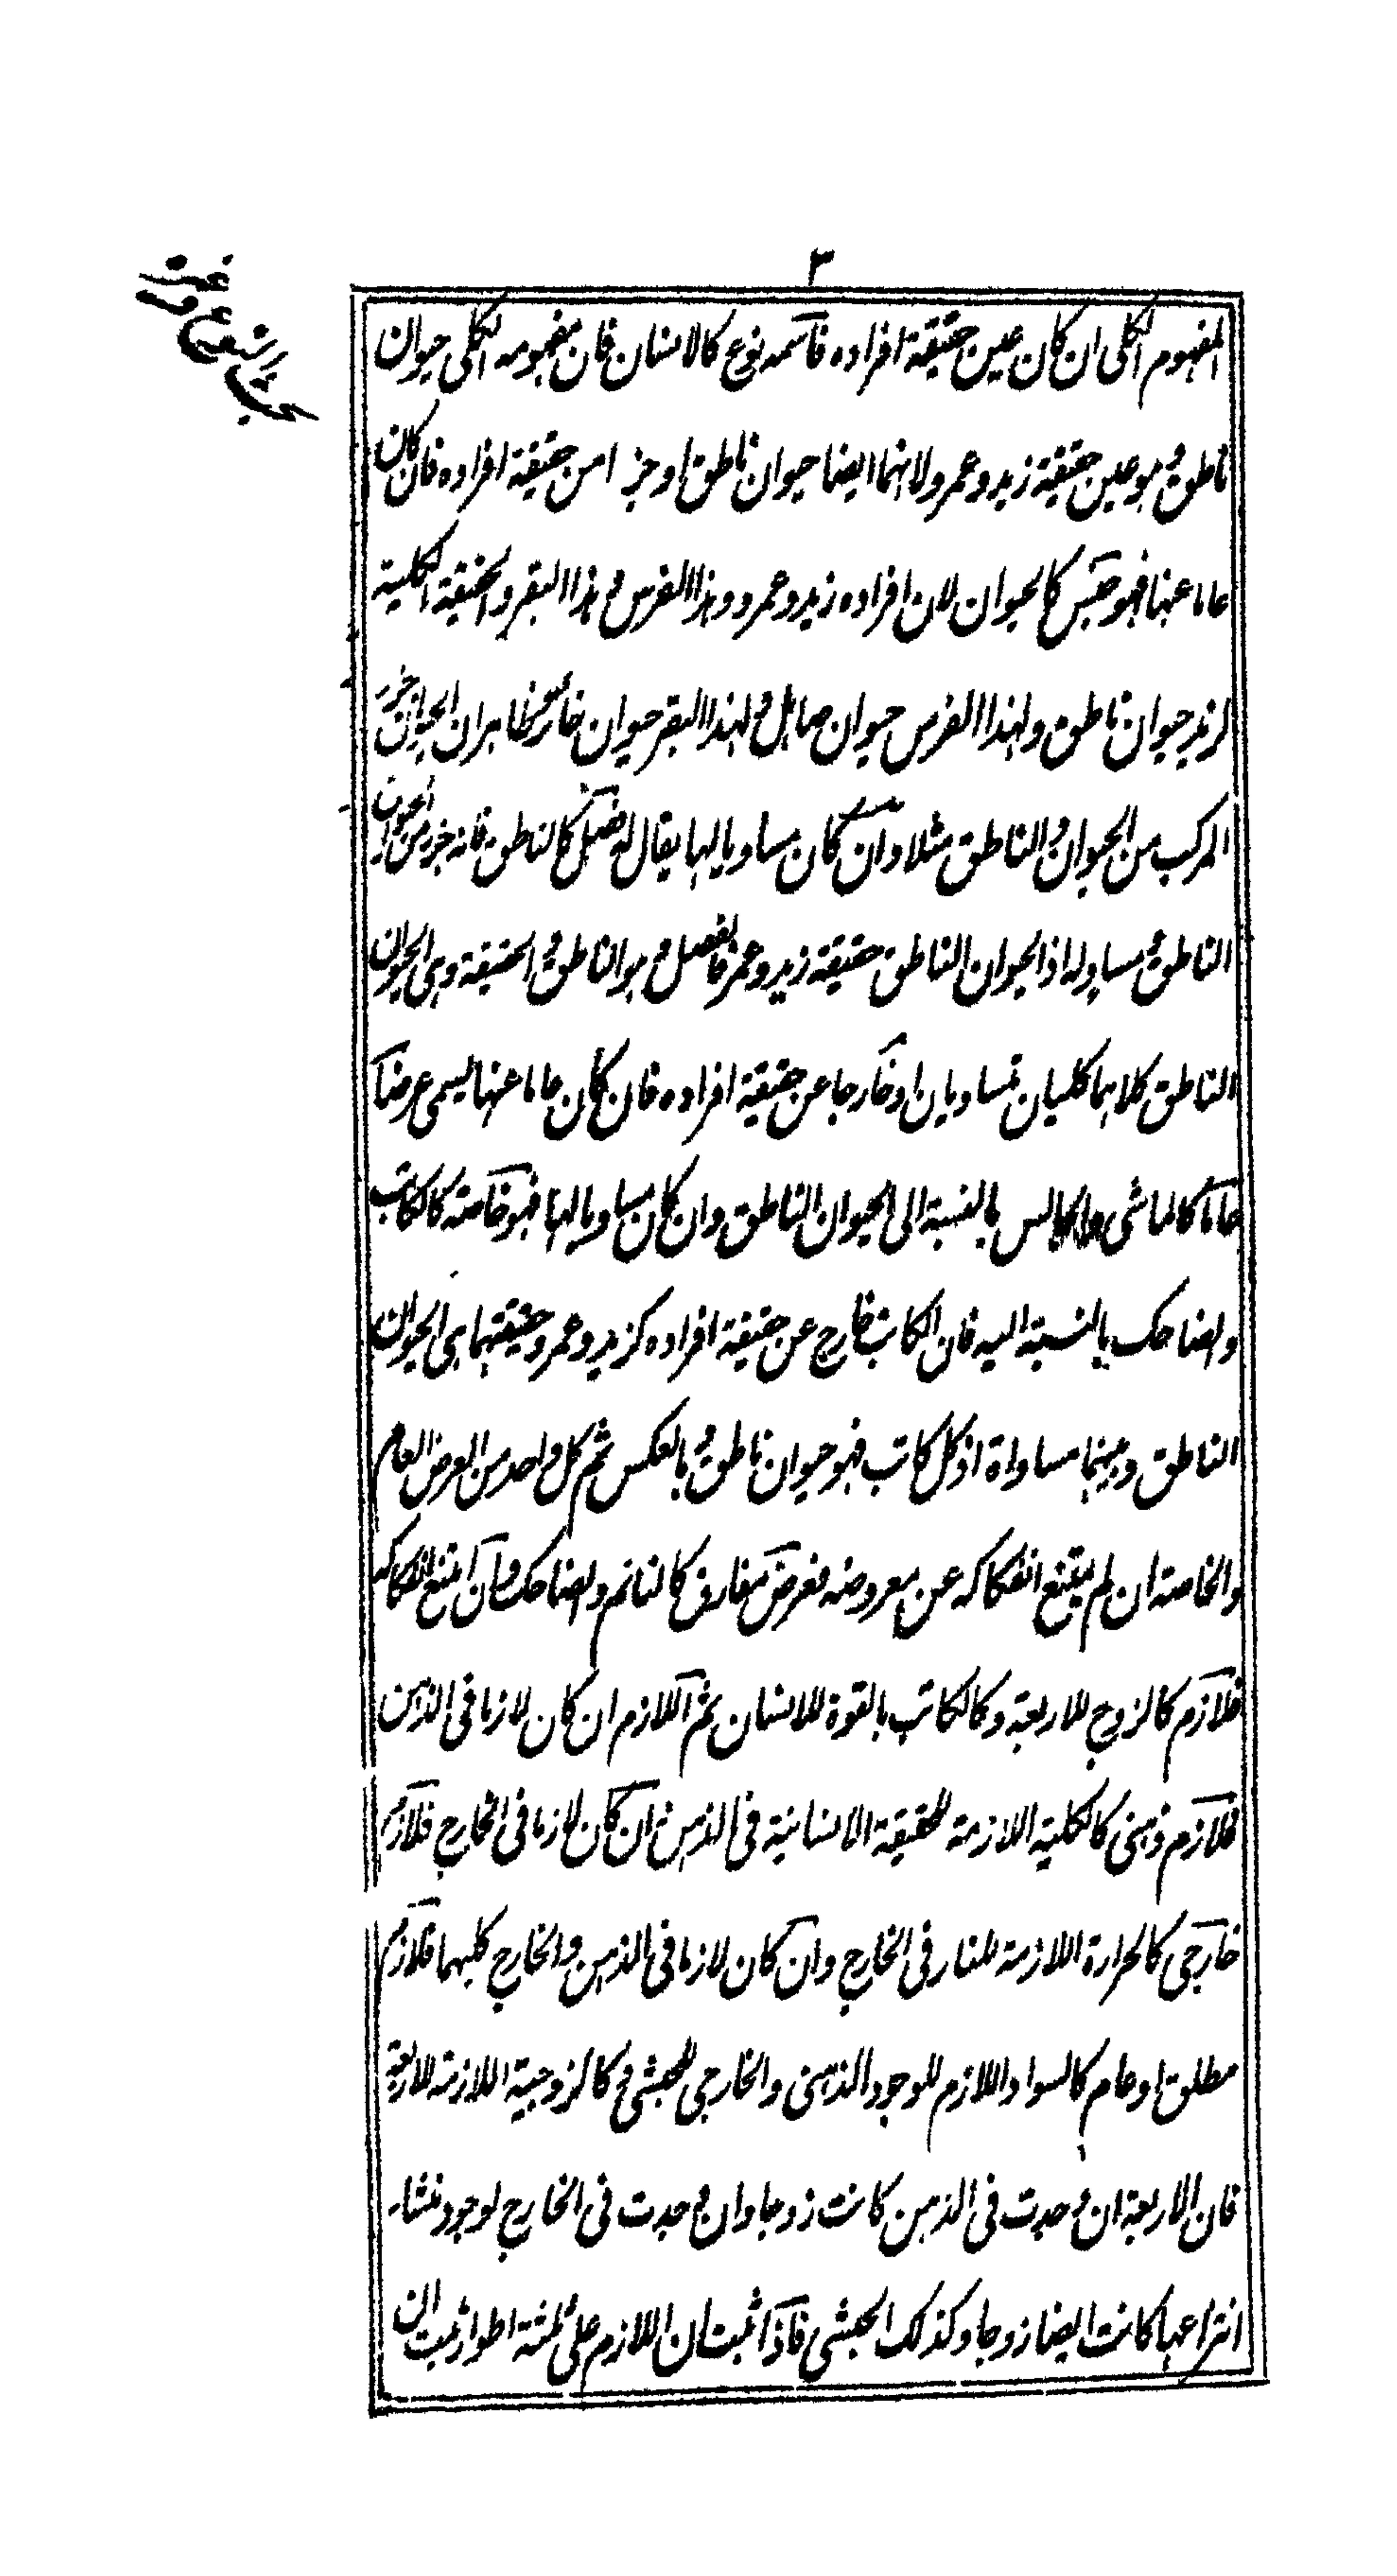 ٣
المفهوم الكلى ان كان عين حقيقة افراده فاسمه نوع كالانسان فان مفهومه الكلى حيوان
ناطق وهو عين حقيقة زيد وعمرو لانهما ايضا حيوان ناطق او جزءا من حقيقة افراده فان كان
عاما عنها فهو جنس كالحيوان لان افراده زيد وعمرو وهذا الفرس وهذا البقر والحقيقة الكلية
لزيد حيوان ناطق ولهذا الفرس حيوان صاهل ولهذا البقر حيوان خائر وظاهر ان الحيوان جزء
المركب من الحيوان والناطق مثلا وان كان مساويا لها يقال له فصل كالناطق فانه جزء من الحيوان
الناطق ومساو له اذ الحيوان الناطق حقيقة زيد وعمرو فالفصل وهو الناطق والحقيقة وهى الحيوان
الناطق كلاهما كليان متساويان او خارجا عن حقيقة افراده فان كان عاما عنها يسمى عرضا
عاما كالماشى بالنسبة الى الحيوان الناطق وان كان مساويا لها فهو خاصة كالكاتب
والضاحك بالنسبة اليه فان الكاتب خارج عن حقيقة افراده كزيد وعمرو حقيقتهما هى الحيوان
الناطق وبينهما مساواة اذ كل كاتب فهو حيوان ناطق وبالعكس ثم كل واحد من العرض العام
والخاصة ان لم يمتنع انفكاكه عن معروضه فعرض مفارق كالنائم والضاحك وان امتنع انفكاكه
فلازم كالزوج للاربعة وكالكاتب بالقوة للانسان ثم اللازم ان كان لازما فى الذهن
فلازم ذهنى كالكلية اللازمة للحقيقة الانسانية فى الذهن وان كان لازما فى الخارج فلازم
خارجى كالحرارة اللازمة للنار فى الخارج وان كان لازما فى الذهن والخارج كليهما فلازم
مطلق او عام كالسواد اللازم للوجود الذهنى والخارجى للحبشى وكالزوجية اللازمة للاربعة
فان الاربعة ان وجدت فى الذهن كانت زوجا وان وجدت فى الخارج لوجود منشاء
انتزاعها كانت ايضا زوجا وكذلك الحبشى فاذا ثبت ان اللازم على ثلثة اطوار ثبت ان